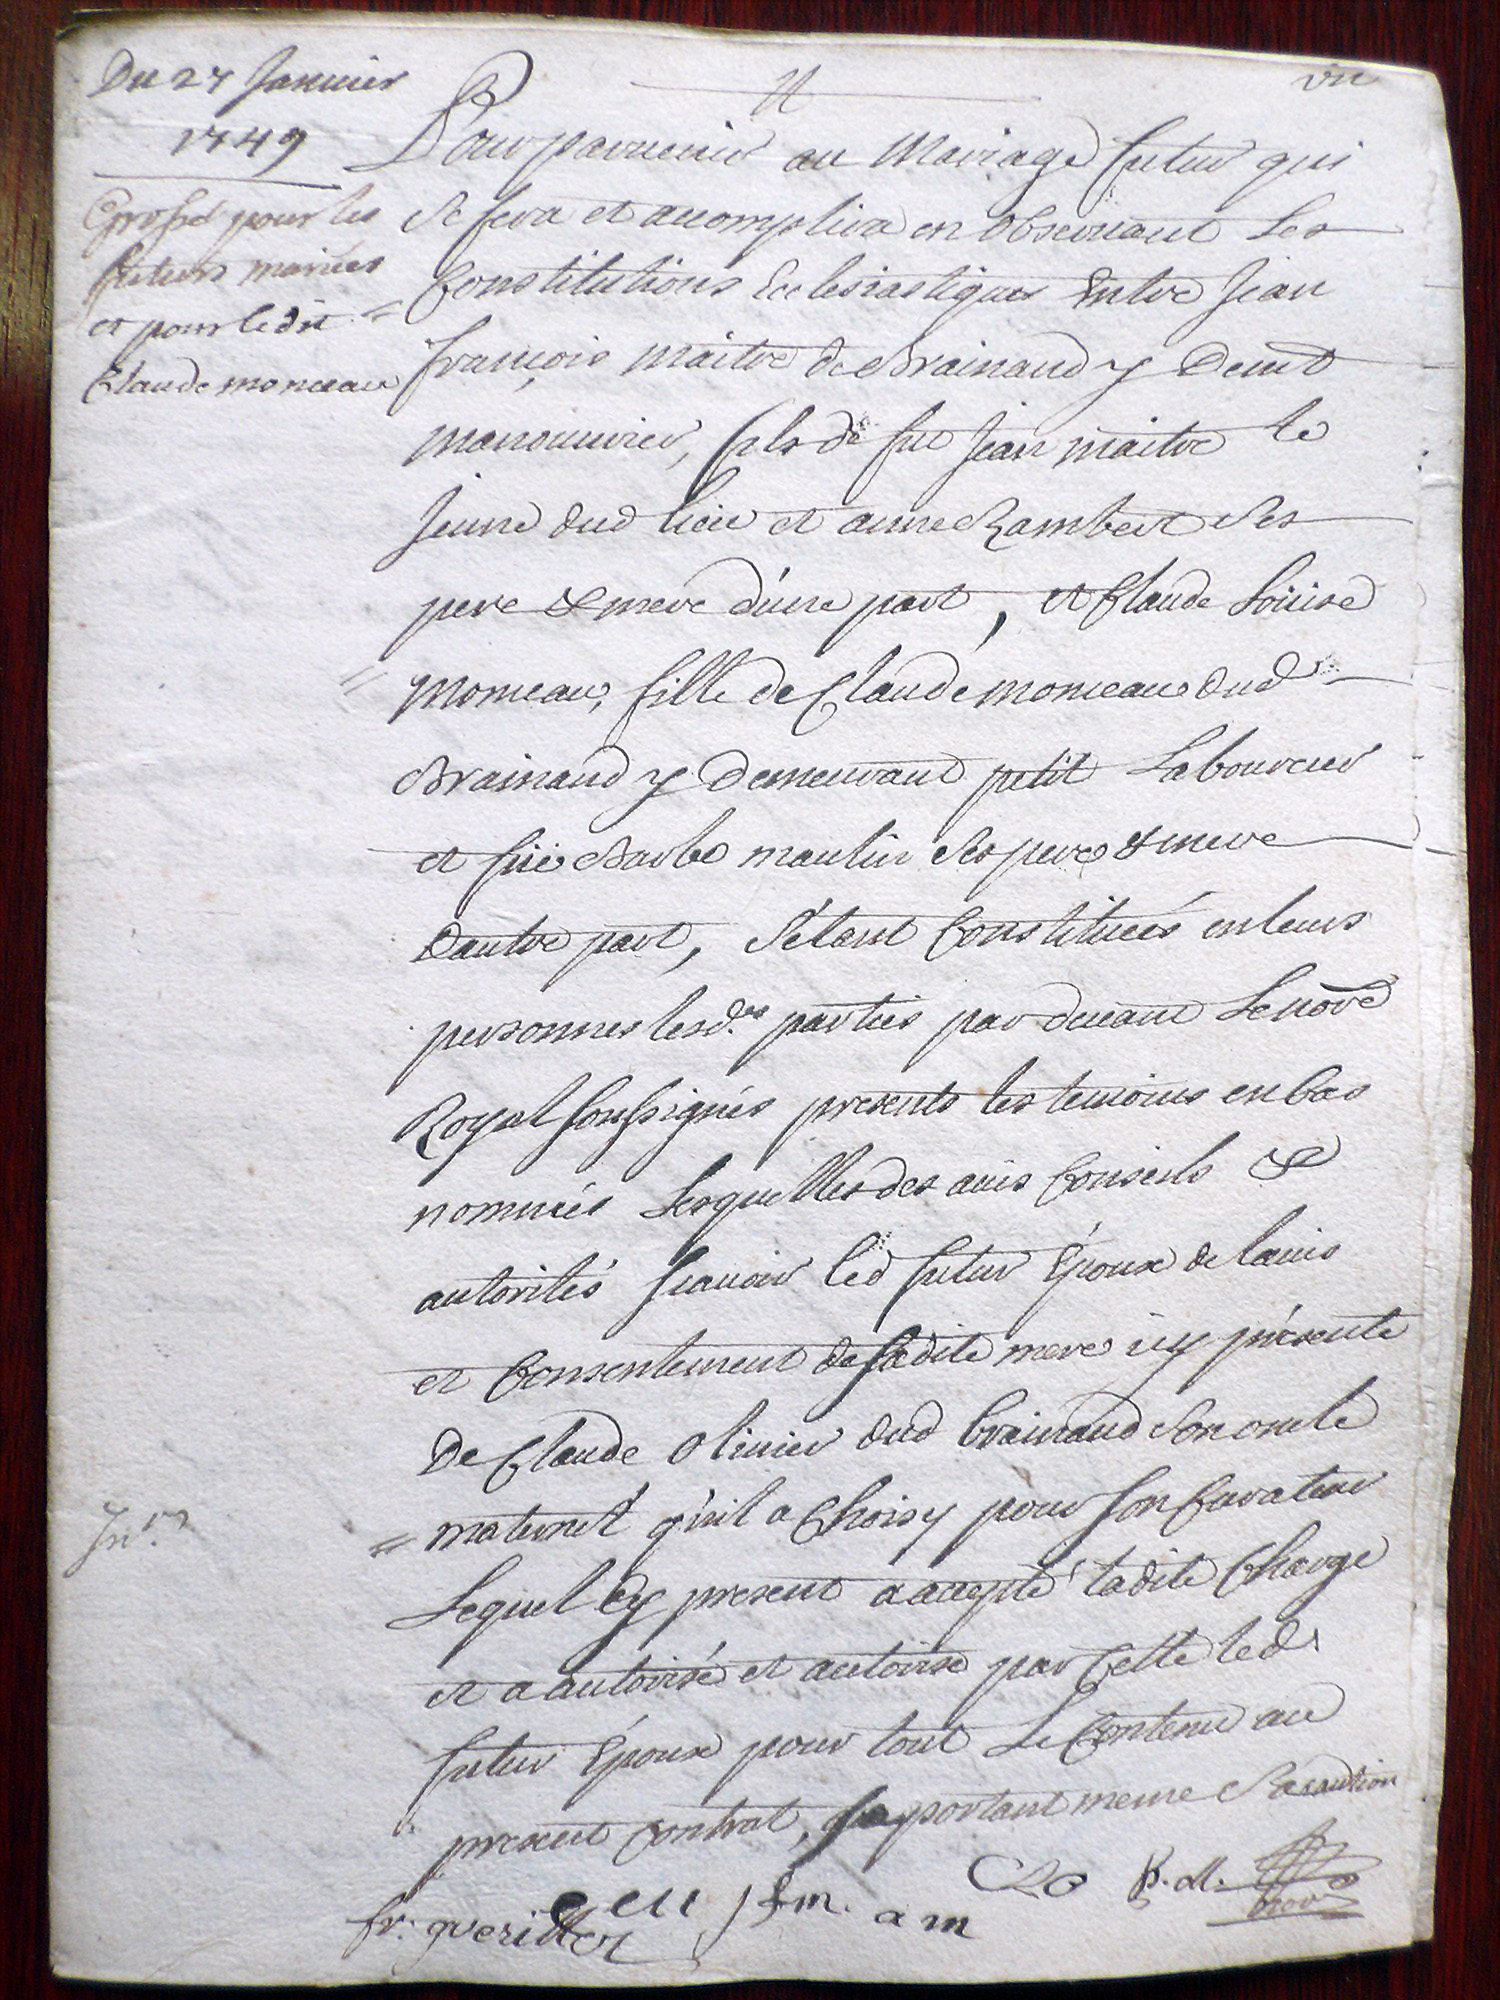 Du 27 Janvier
1749
vu
Grossé pour les
futurs mariées
et pour ledit
Claude monceau
Pour parvenir au Mariage futur qui
Se fera et accomplira en observant Les
Constitutions Ecclesiastiques Entre Jean
françois maitre de Brainaud y Demt
manouvrier, fils de feu Jean maitre le
Jeune dud lieu et anne Lambert Ses
pere & mere d'une part, et Claude Louise
Monceau, fille de Claude monceau dud
Brainaud y Demeurant petit Laboureur
et fue Barbe maulin Ses pere & mere
Dautre part, s'étant Constituées en leurs
personnes lesd.es parties par devant Le no.re
Royal Soussignés presents les temoins en bas
nommés Lesquelles des avis Conseils &
autorités sçavoir led futur Époux de lavis
et Consentement de sadite mere icy présente
De Claude olivier dud brainaud Son oncle
maternel qu'il a Choisy pour son Curateur
Lequel cy present a accepté ladite Charge
et a autorisé et autorise par Cette led
futur Époux pour tout Le Contenu au
present Contrat, se portant meme Sa caution
J f m. a m
B. M.
fr: